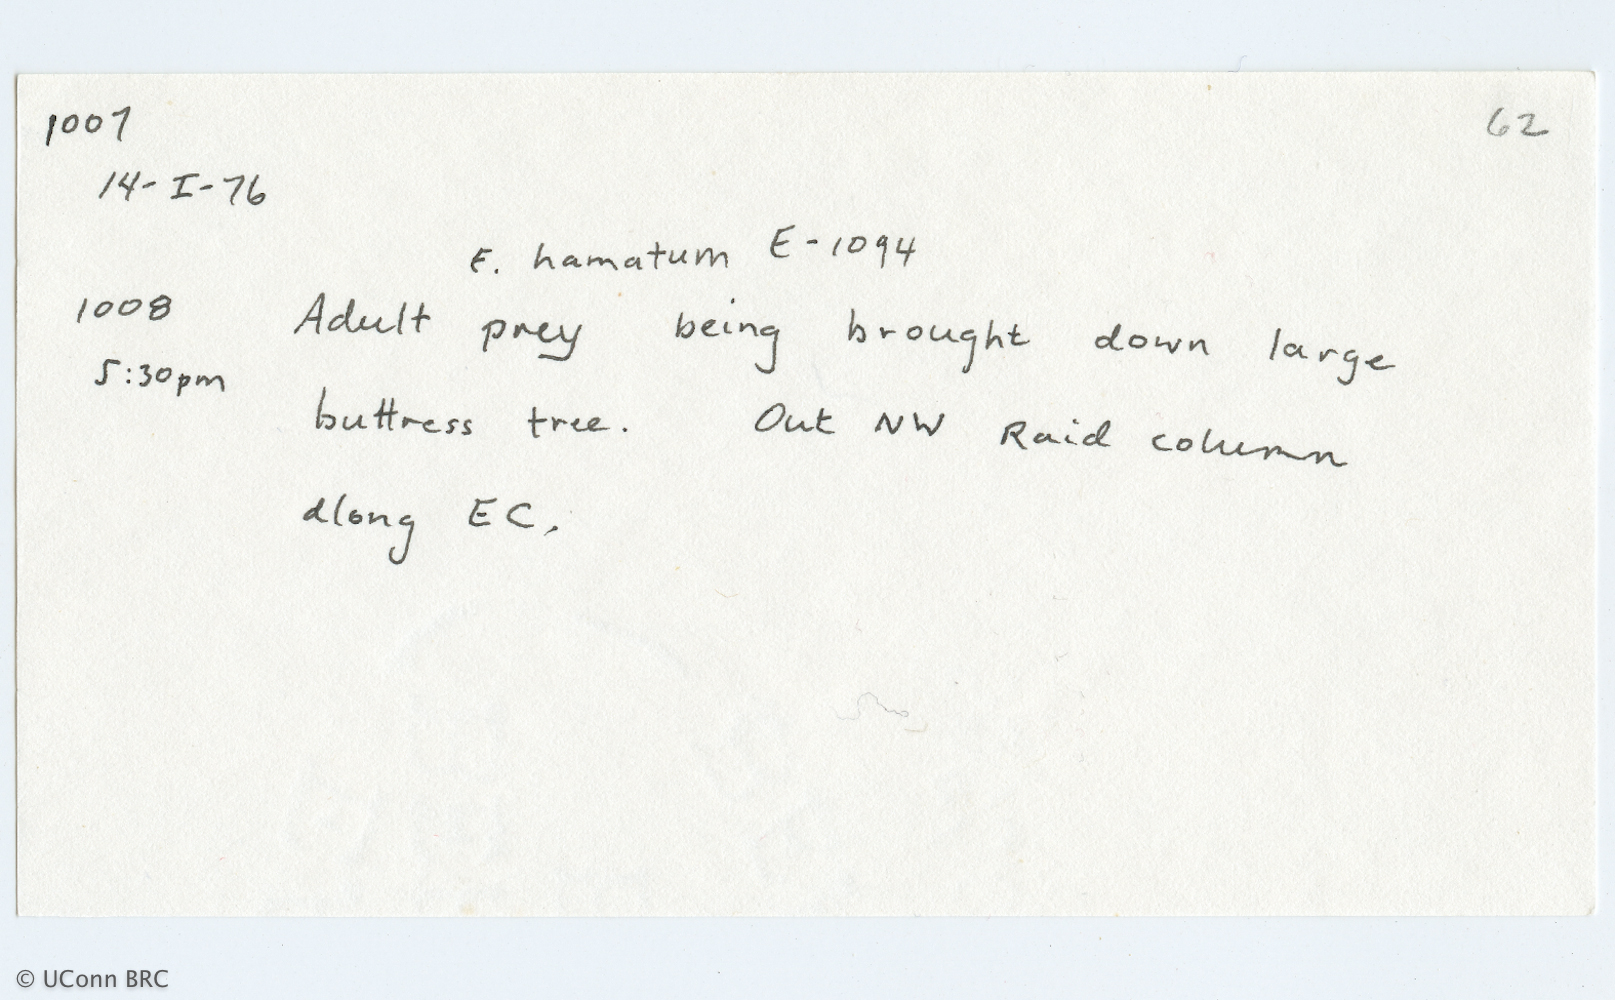 1007
62
14-I-76
E. hamatum E-1094
1008 Adult prey being brought down large
5:30pm buttress tree. Out NW Raid column
along EC.
© UConn BRC